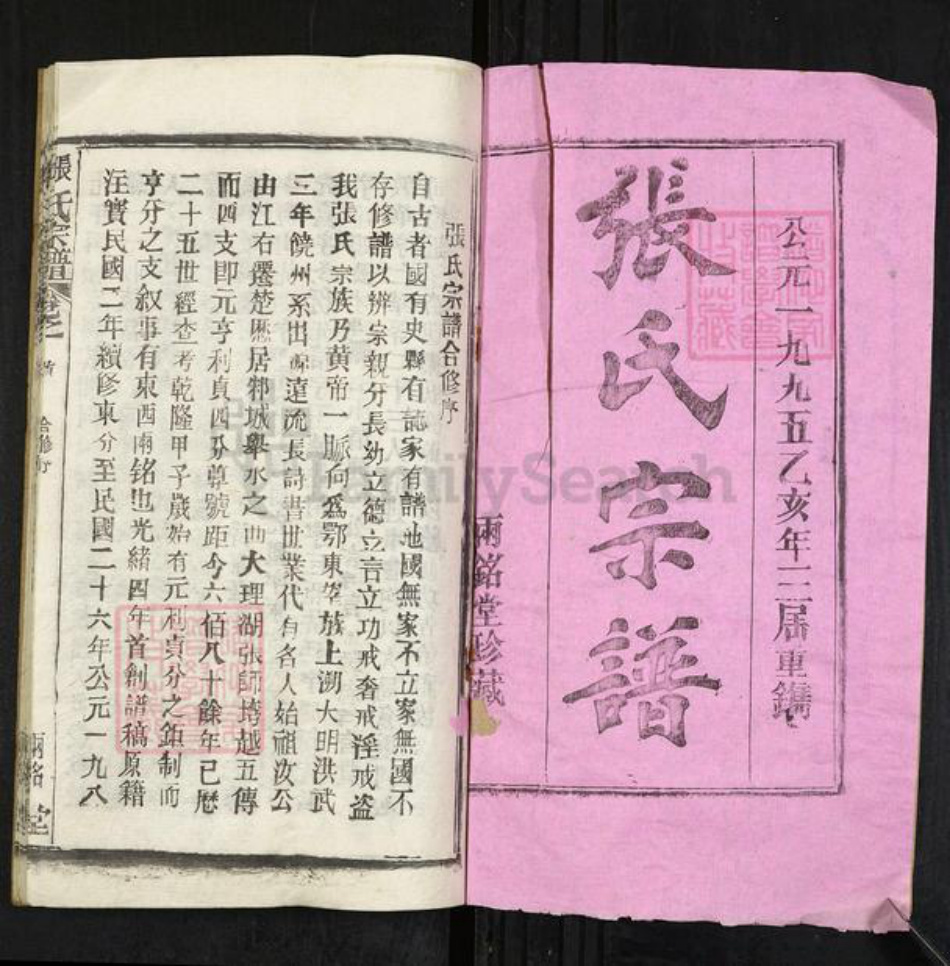 公元一九九五乙亥年三届重鐫
張氏宗譜
兩銘堂珍藏
張氏宗譜合修序
自古者國有史縣有誌家有譜地國無家不立家無國不
存修譜以辨宗親分長幼立德立言立功戒奢戒淫戒盗
我張氏宗族乃黄帝一脈何爲鄂東望族上溯大明洪武
三年饒州系出源遠流長詩書世業代有名人始祖汝公
由江右遷楚歷居邾城舉水之曲大理湖張師垮越五傳
而四支即元亨利貞四分尊號距今六佰八十餘年已歷
二十五世經查考乾隆甲子歲始有元利貞分之鎮制而
亨分之支叙事有東西兩铭也光緒四年首創譜稿原籍
汪寳民國二年續修東分至民國二十六年公元一九八
張氏宗譜卷之 首
合修序
兩銘堂
FamilySearch